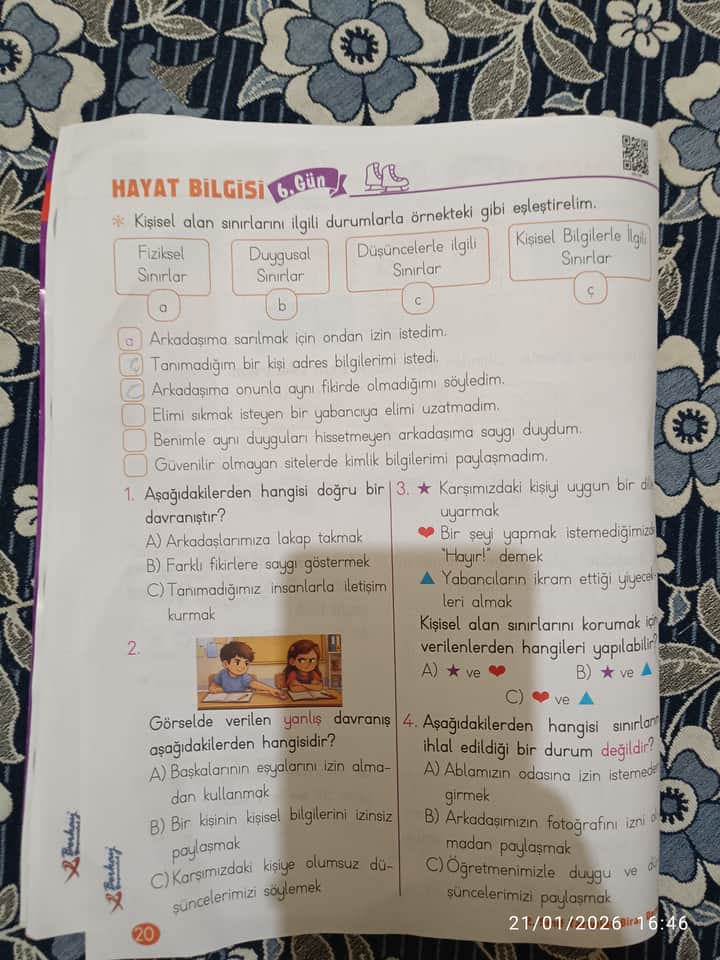 HAYAT BİLGİSİ 6.Gün
* Kişisel alan sınırlarını ilgili durumlarla örnekteki gibi eşleştirelim.
Fiziksel
Sınırlar
a
Duygusal
Sınırlar
b
Düşüncelerle ilgili
Sınırlar
c
Kişisel Bilgilerle İlgili
Sınırlar
ç
a Arkadaşıma sarılmak için ondan izin istedim.
ç Tanımadığım bir kişi adres bilgilerimi istedi.
c Arkadaşıma onunla aynı fikirde olmadığımı söyledim.
Elimi sıkmak isteyen bir yabancıya elimi uzatmadım.
Benimle aynı duyguları hissetmeyen arkadaşıma saygı duydum.
Güvenilir olmayan sitelerde kimlik bilgilerimi paylaşmadım.
1. Aşağıdakilerden hangisi doğru bir
davranıştır?
A) Arkadaşlarımıza lakap takmak
B) Farklı fikirlere saygı göstermek
C) Tanımadığımız insanlarla iletişim
kurmak
2.
Görselde verilen yanlış davranış
aşağıdakilerden hangisidir?
A) Başkalarının eşyalarını izin alma-
dan kullanmak
B) Bir kişinin kişisel bilgilerini izinsiz
paylaşmak
C) Karşımızdaki kişiye olumsuz dü-
şüncelerimizi söylemek
3. ★ Karşımızdaki kişiyi uygun bir
uyarmak
❤ Bir şeyi yapmak istemediğimizde
"Hayır!" demek
▲ Yabancıların ikram ettiği yiyecek-
leri almak
Kişisel alan sınırlarını korumak için
verilenlerden hangileri yapılabilir?
A) ★ ve ❤ B) ★ ve ▲
C) ❤ ve ▲
4. Aşağıdakilerden hangisi sınırların
ihlal edildiği bir durum değildir?
A) Ablamızın odasına izin istemeden
girmek
B) Arkadaşımızın fotoğrafını izni
madan paylaşmak
C) Öğretmenimizle duygu ve
şüncelerimizi paylaşmak
20
21/01/2026 16:46